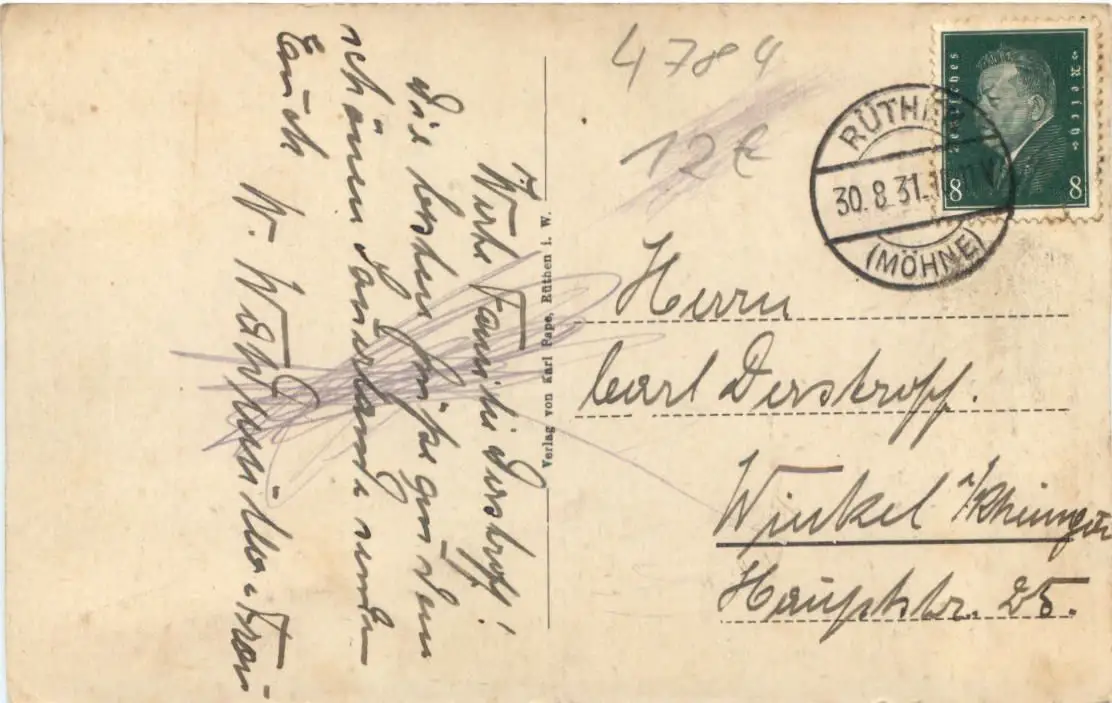 4784
12 €
Deutsches Reich
8 8
RÜTHEN
30.8.31.
(MÖHNE)
Herrn
Carl Derstroff.
Winkel i/Rheingau
Hauptstr. 25.
Verlag von Karl Pape, Rüthen i. W.
Werte Familie Derstroff!
Die besten Grüße aus dem
schönen Sauerlande senden
Euch
W. u. Frau